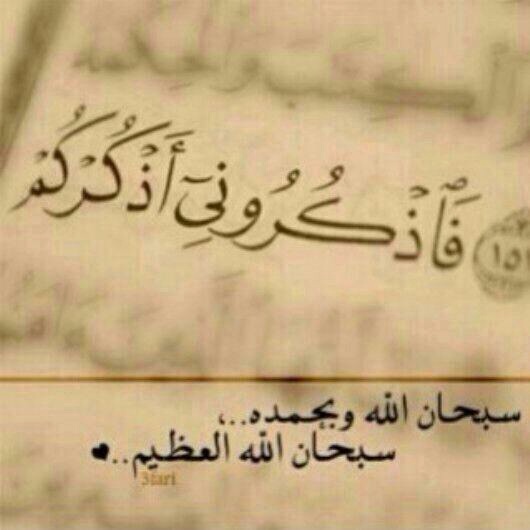 الْكِتَـٰبَ وَالْحِكْمَةَ
١٥١ فَٱذْكُرُونِىٓ أَذْكُرْكُمْ
سبحان الله وبحمده..،
سبحان الله العظيم..♥